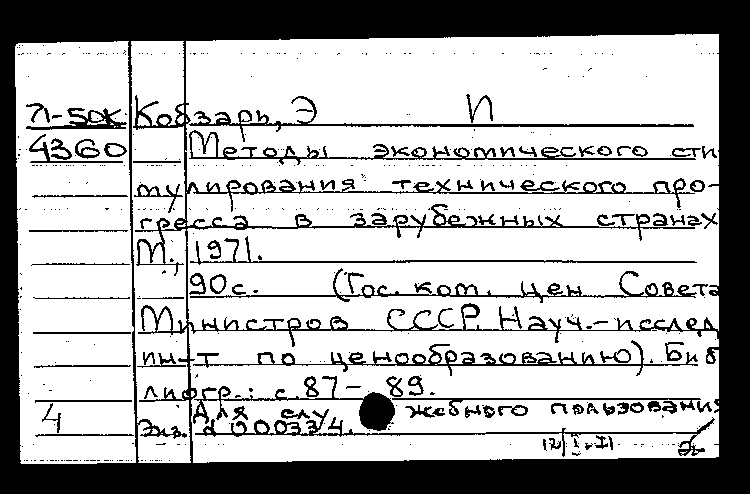 Л-50К Кобзарь, Э И
4360 Методы экономического сти
мулирования технического про-
гресса в зарубежных странах
М., 1971.
90с. (Гос. ком. цен Совета
Министров СССР. Науч.-исслед
ин-т по ценообразованию). Биб
лиогр.: с.87-89.
4 Для слу жебного пользования
Экз. 00033/4.